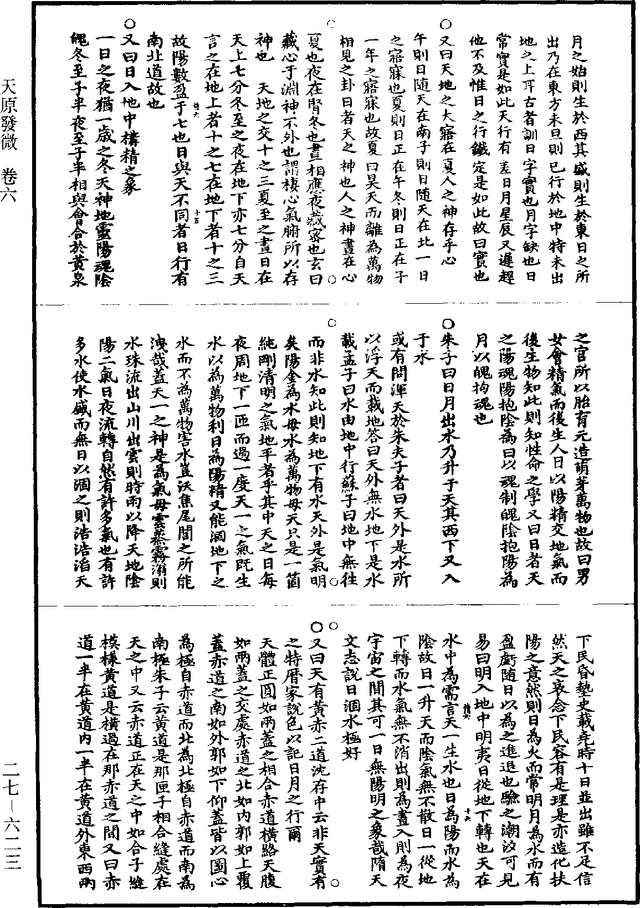 月之始則生於西其盛則生於東日之所
出乃在東方未旦則已行於地中特未出
地之上耳古者訓日字實也月字缺也日
常實是如此天行有差日月星辰又遲趕
他不及惟日之行鐵定是如此故曰實也
○又曰天地之大寤在夏人之神存乎心
午則日隨天在南子則日隨天在北一日
之寤寐也夏則日正在午冬則日正在子
一年之寤寐也故夏曰昊天而離為萬物
相見之卦日者天之神也人之神晝在心
夏也夜在腎冬也晝相應夜藏密也玄曰
藏心于淵神不外也謂棲心氣腑所以存
神也 天地之交十之三夏至之晝日在
天上七分冬至之夜在地下亦七分自天
言之在地上者十之七在地下者十之三
故陽數盈于七也日與天不同者日行有
南北道故也
○又曰日入地中搆精之象
一日之夜猶一歲之冬天神地靈陽魂陰
魄冬至子半夜至子半相與會合於黃泉
之宮所以胎育元造萌芽萬物也故曰男
女會精氣而後生人日以陽精交地氣而
後生物知此則知性命之學又曰日者天
之陽魂陽抱陰為日以魂制魄陰抱陽為
月以魄拘魂也
○朱子曰日月出水乃升于天其西下又入
于水
或有問渾天於朱夫子者曰天外是水所
以浮天而載地答曰天外無水地下是水
載孟子曰水由地中行蘇子曰地中無往
而非水知此則知地下有水天外是氣明
矣陽金為水母水為萬物母天只是一箇
純剛清明之氣地平者乎其中天之日每
夜周地下一匝而過一度天一之氣既生
水以為萬物利日為陽精又能涸地下之
水而不為萬物害水豈沃焦尾閭之所能
洩哉蓋天一之神是為氣母雲蒸霧滃則
水珠流出山川出雲則時雨以降天地陰
陽二氣日夜流轉自然有許多氣也有許
多水使水盛而無日以涸之則浩浩滔天
下民昏墊史載堯時十日並出雖不足信
然天之哀念下民容有是理是亦造化扶
陽之意然則日為火而常明月為水而有
盈虧隨日以為之進退也驗之潮汐可見
易曰明入地中明夷日從地下轉也天在
水中為需言天一生水也日為陽而水為
陰故日一升天而陰氣無不散日一從地
下轉而水氣無不消出則為晝入則為夜
宇宙之間其可一日無陽明之象哉隋天
文志說日涸水極好
○又曰天有黃赤二道沈存中云非天實有
之特曆家設色以記日月之行爾
天體正圓如兩蓋之相合赤道橫絡天腹
如兩蓋之交處赤道之北如內郭如上覆
蓋赤道之南如外郭如下仰蓋皆以圓心
為極自赤道而北為北極自赤道而南為
南極朱子云黃道是那匣子相合縫處在
天之中又云赤道正在天之中如合子縫
模樣黃道是橫過在那赤道之間又曰赤
道一半在黃道內一半在黃道外東西兩
天原發微 卷六
二七－六二三